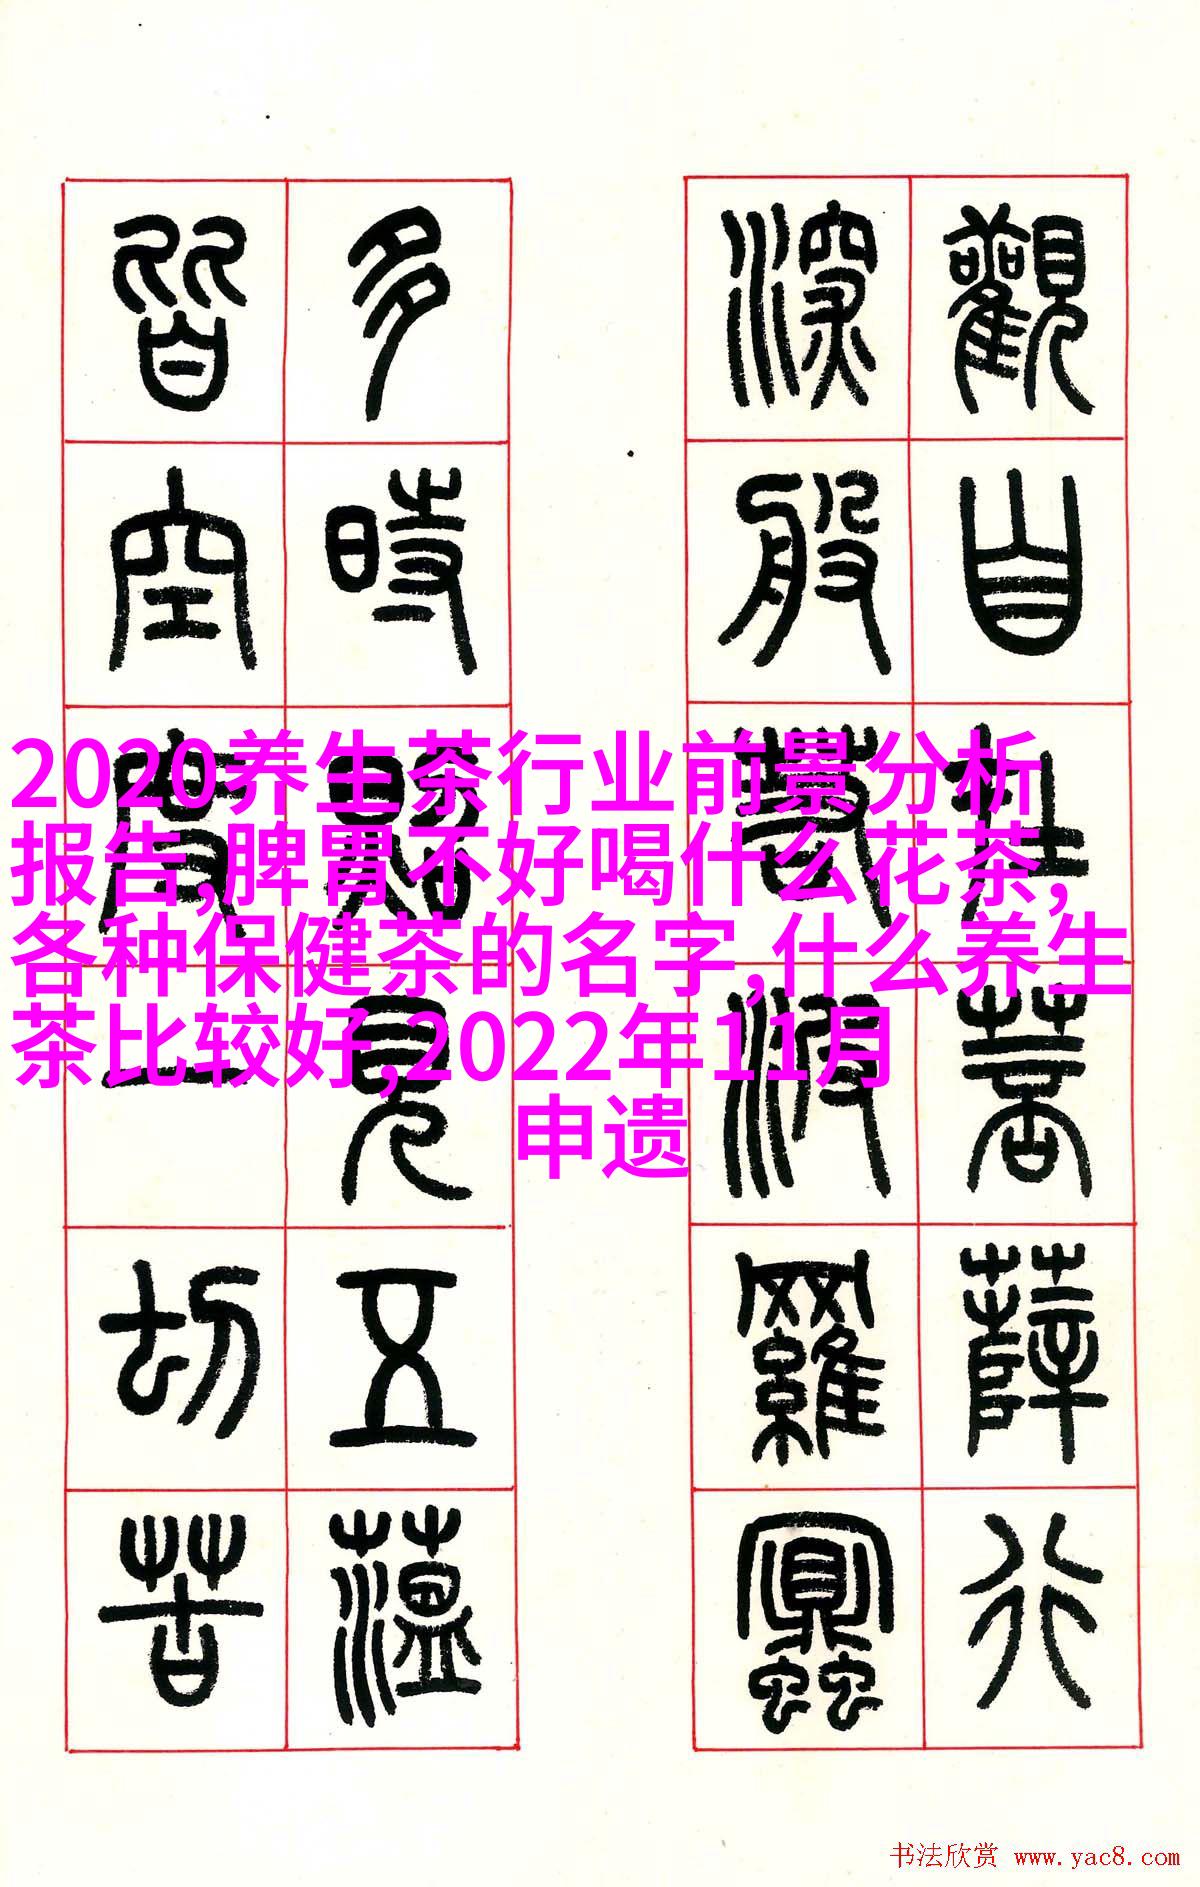 觀自在菩薩行
深般若波羅蜜
多時照見五蘊
皆空度一切苦
2020养生茶行业前景分析
报告,脾胃不好喝什么花茶,
各种保健茶的名字,什么养生
茶比较好,2022年11月
申遗
书法欣赏 www.yac8.com